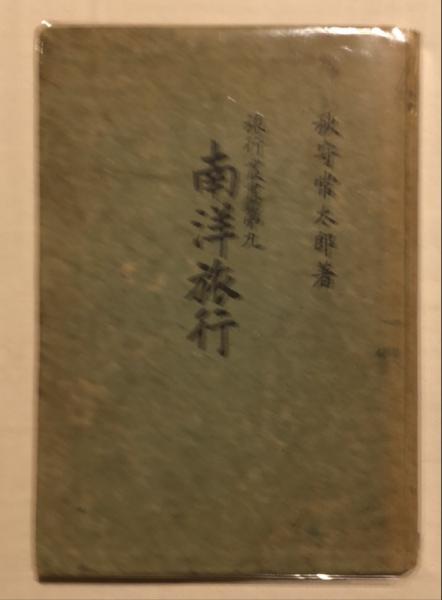 秋守常太郎著
旅行叢書第九
南洋旅行